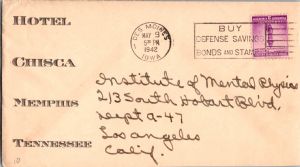 HOTEL
CHISCA
MEMPHIS
TENNESSEE
DES MOINES
MAY 9
5 PM
1942
IOWA
BUY
DEFENSE SAVINGS
BONDS AND STAMPS
Institute of Mental Physics
213 South Hobart Blvd,
Dept a-47
Los angeles
Calif.